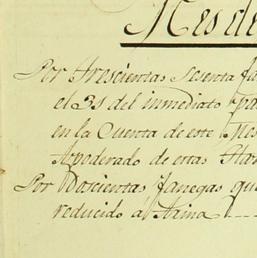 Mes de
Por Trescientas sesenta fa
el 31 del inmediato pa
en la Cuenta de este Mes
Apoderado de estas Ha
Por Doscientas fanegas que
reducido á Arina